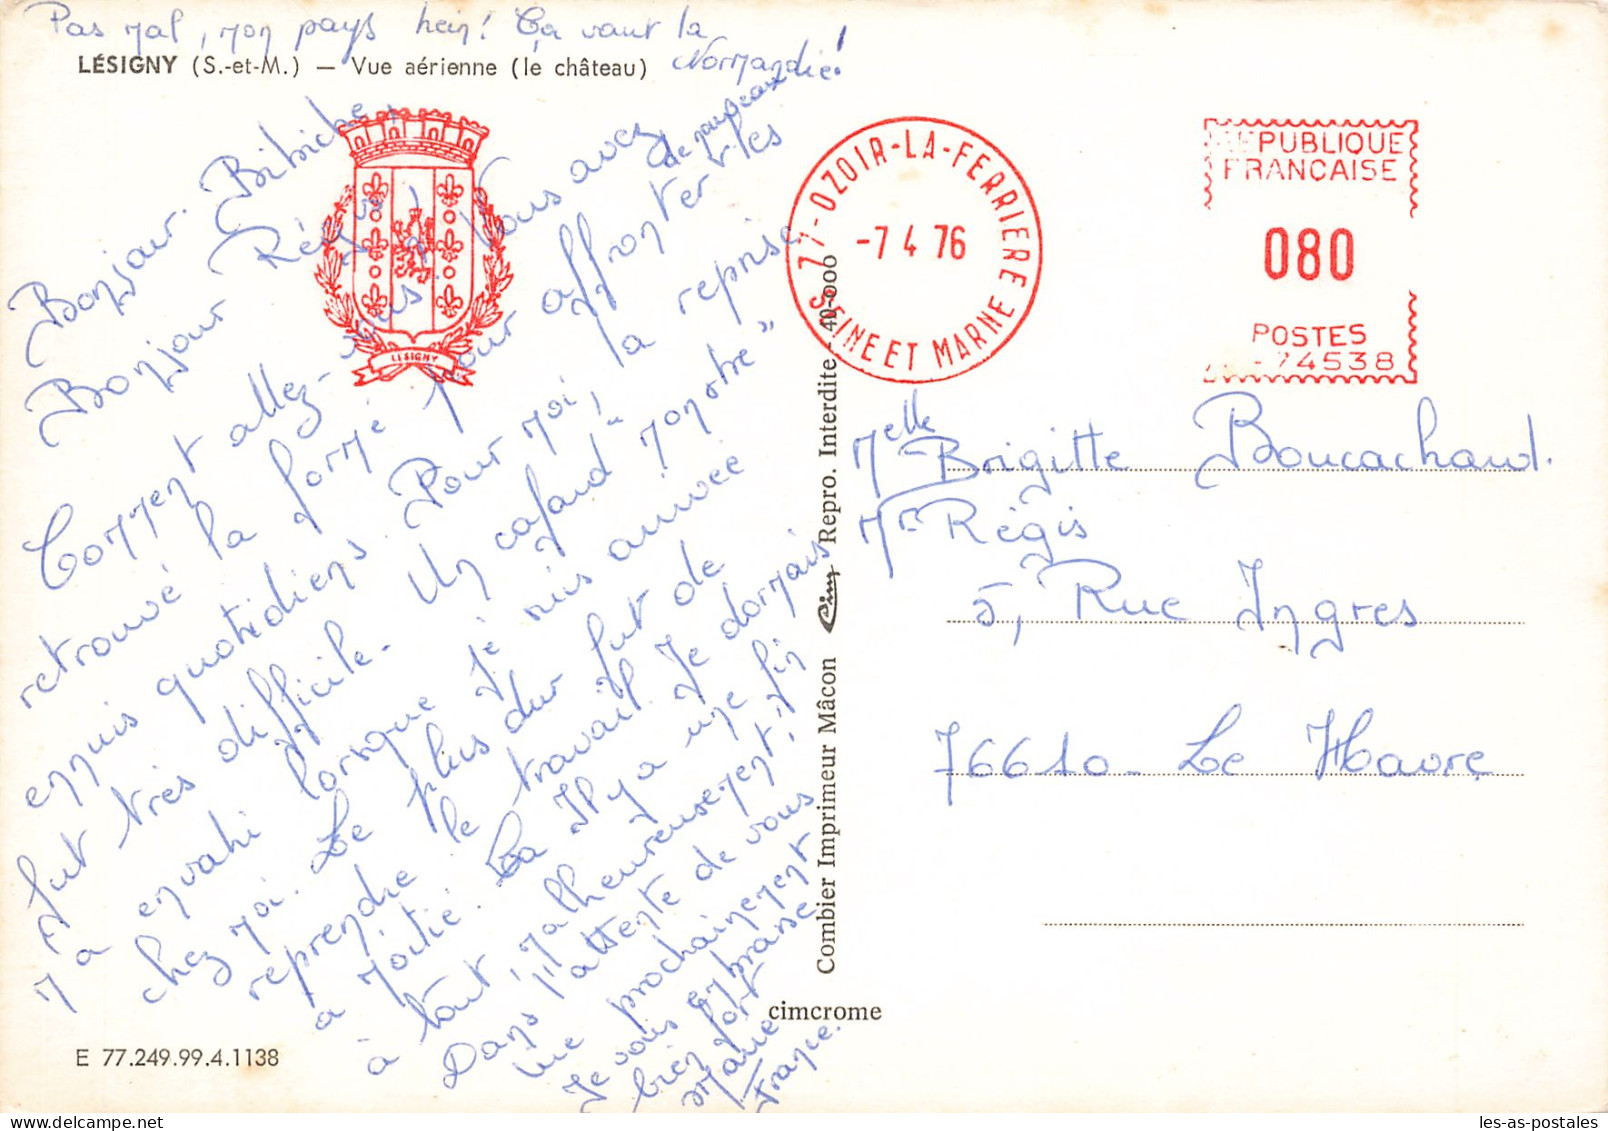 Pas mal, mon pays hein! Ça vaut la
Normandie!
LÉSIGNY (S.-et-M.) — Vue aérienne (le château)
LESIGNY
Bonjour Bibiche,
Bonjour Régis,
Comment allez-vous? Vous avez
retrouvé la forme pour affronter de nouveaux
ennuis quotidiens. Pour moi, la reprise
fut très difficile. Un cafard "monstre"
m'a envahi lorsque je suis arrivée
chez moi. Le plus dur fut de
reprendre le travail. Je dormais
à moitié. Ça Il y a une fin
à tout, malheureusement!
Dans l'attente de vous
lire prochainement
Je vous embrasse
bien fort
Marie
France.
77-OZOIR-LA-FERRIERE
-7 4 76
SEINE ET MARNE
REPUBLIQUE
FRANCAISE
080
POSTES
74538
Melle Brigitte Boucachard.
Mr Régis
5, Rue Ingres
76610 - Le Havre
Combier Imprimeur Mâcon Cim Repro. Interdite 40-000
cimcrome
E 77.249.99.4.1138
les-as-postales